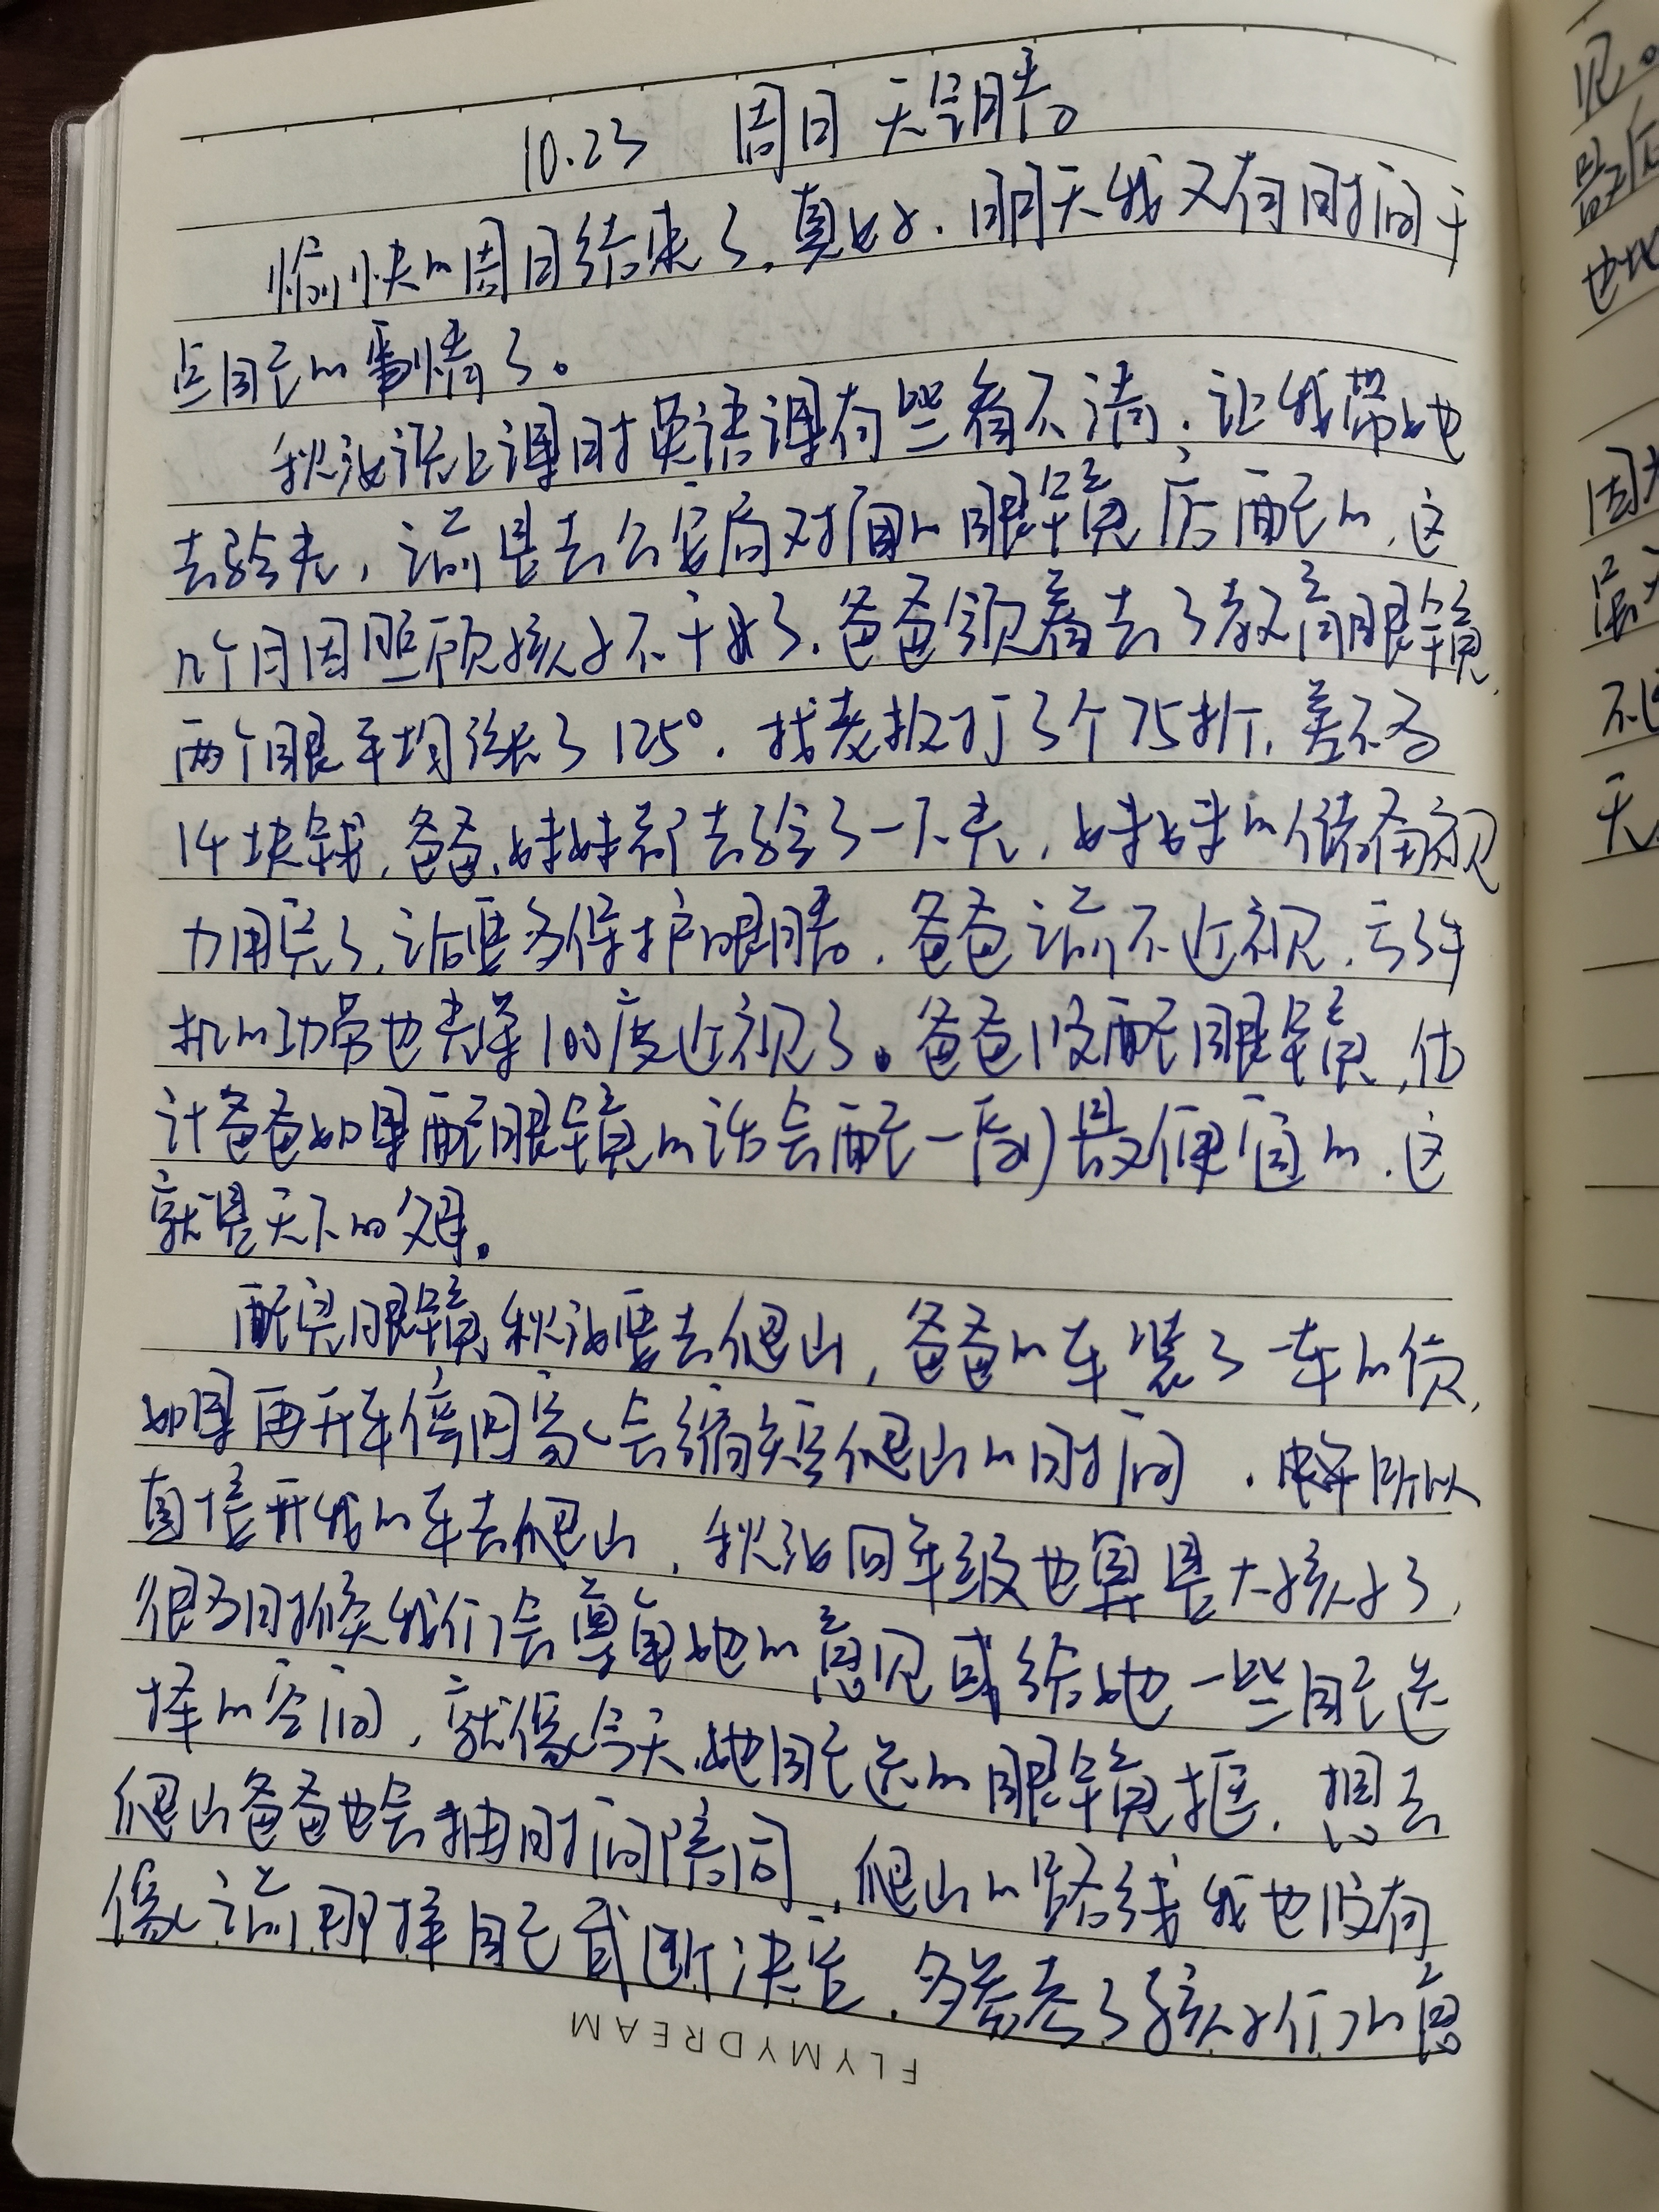 10.23 周日 天气晴。
愉快的周日结束了,真好.明天我又有时间干
点自己的事情了。
秋汝说上课时英语课有些看不清.让我带她
去验光,之前是去公安局对面的眼镜店配的.这
几个月因照顾孩子不干了.爸爸领着去了眼镜,
两个眼平均涨了125°.找老板打了个75折,差不多
14块钱,爸爸、妹妹都去验了一下光,妹妹的储备视
力用完了,说要多保护眼睛。爸爸之前不近视.亏了手
机的功劳也光荣100度近视了。爸爸没配眼镜,估
计爸爸如果配眼镜的话会配一副最便宜的.这
就是天下的父母。
配完眼镜秋汝要去爬山,爸爸的车装了一车的货,
如果再开车停回家会缩短爬山的时间.所以
直接开我的车去爬山.秋汝四年级也算是大孩子了,
很多时候我们会尊重她的意见或给她一些自己选
择的空间,就像今天,她自己选的眼镜框.想去
爬山爸爸也会抽时间陪同,爬山的路线我也没有
像之前那样自己武断决定.多参考了孩子们的意
FLYMYDREAM
见。